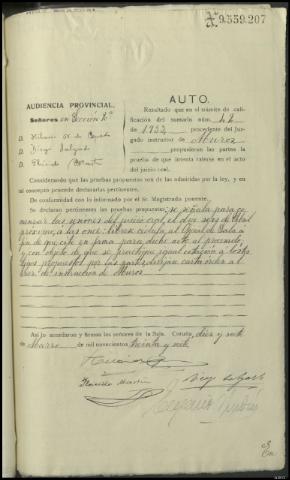 A 9.559.207
AUDIENCIA PROVINCIAL
Señores en Sección 2ª
D.
D. Diego Salgado
D.
AUTO.
Resultado que en el trámite de cali-
ficación del sumario núm. 42
de 1932 procedente del Juz-
gado instructor de Muros
propusieran las partes la
prueba de que intenta valerse en el acto
del juicio oral.
Considerando que las pruebas propuestas son de las admitidas por la ley, y en
tal concepto procede declararlas pertinentes.
De conformidad con lo informado por el Sr. Magistrado ponente.
Se declaran pertinentes las pruebas propuestas; se señala para co-
menzar las sesiones del juicio oral, el dia seis de Abril
próximo, a las once: librese cédula al Oficial de Sala a
fin de que cite en forma para dicho acto al procesado,
y con objeto de que se practique igual citación a los testi-
gos propuestos por las partes, dirijase carta orden al
Juez de instrucción de Muros.
Así lo acordaron y firman los señores de la Sala. Coruña, diez y siete
de Marzo de mil novecientos treinta y siete
Diego Salgado